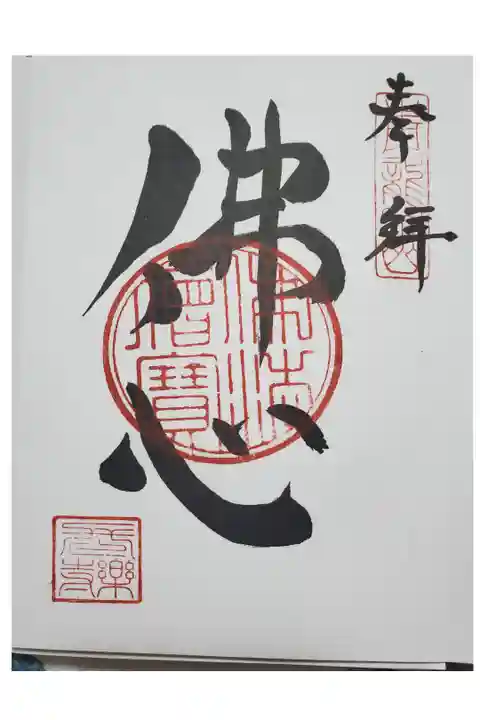 奉拜
佛心
佛法
僧寶